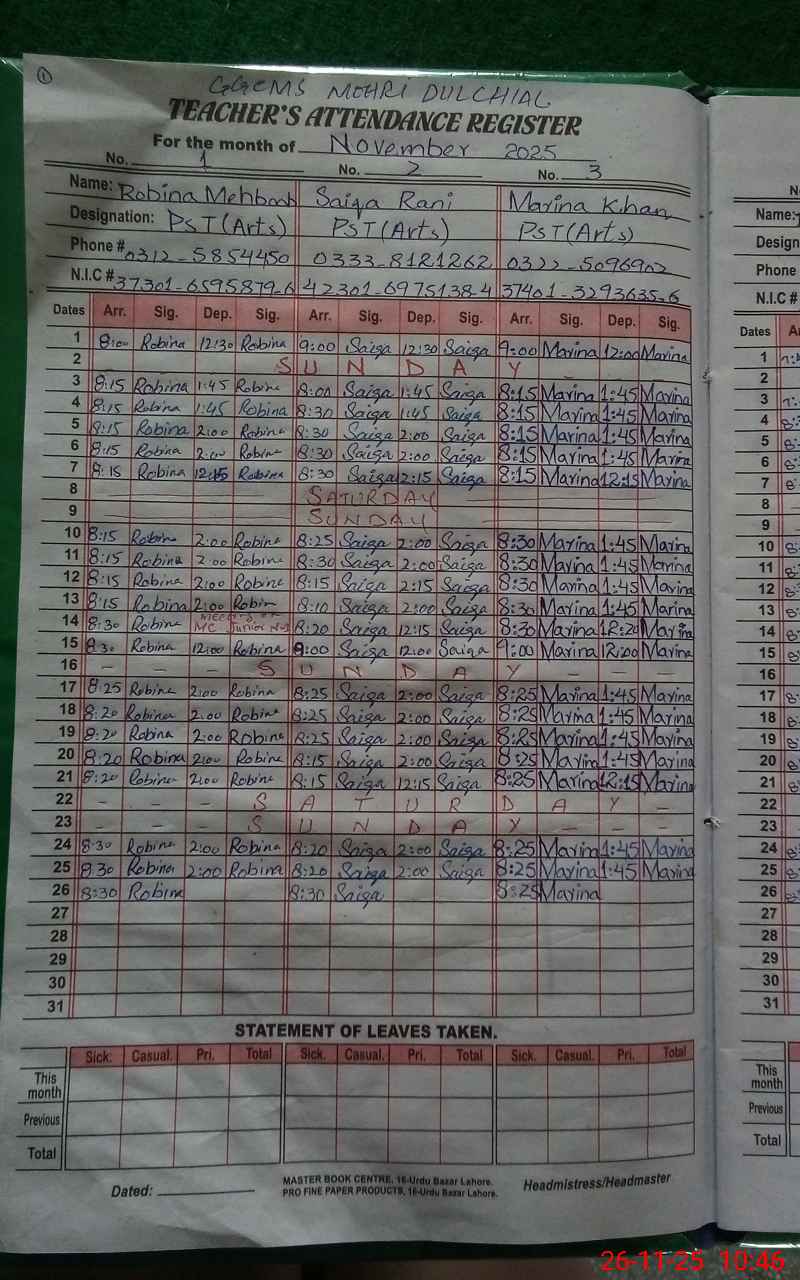 1
GGCMS MOHRI DULCHIAL
TEACHER'S ATTENDANCE REGISTER
For the month of November 2025
No. 1 No. 2 No. 3
Name: Robina Mehboob Saiqa Rani Marina Khan
Designation: PST(Arts) PST(Arts) PST(Arts)
Phone # 0312-5854450 0333-8121262 0322-5096902
N.I.C # 37301-6595879-6 42301-6975138-4 37401-3293635-6
Dates Arr. Sig. Dep. Sig. Arr. Sig. Dep. Sig. Arr. Sig. Dep. Sig.
1 8:00 Robina 12:30 Robina 9:00 Saiqa 12:30 Saiqa 9:00 Marina 12:00 Marina
2 SUNDAY
3 8:15 Robina 1:45 Robina 8:00 Saiqa 1:45 Saiqa 8:15 Marina 1:45 Marina
4 8:15 Robina 1:45 Robina 8:30 Saiqa 1:45 Saiqa 8:15 Marina 1:45 Marina
5 8:15 Robina 2:00 Robina 8:30 Saiqa 2:00 Saiqa 8:15 Marina 1:45 Marina
6 8:15 Robina 2:00 Robina 8:30 Saiqa 2:00 Saiqa 8:15 Marina 1:45 Marina
7 8:15 Robina 12:15 Robina 8:30 Saiqa 12:15 Saiqa 8:15 Marina 12:15 Marina
8 SATURDAY
9 SUNDAY
10 8:15 Robina 2:00 Robina 8:25 Saiqa 2:00 Saiqa 8:30 Marina 1:45 Marina
11 8:15 Robina 2:00 Robina 8:30 Saiqa 2:00 Saiqa 8:30 Marina 1:45 Marina
12 8:15 Robina 2:00 Robina 8:15 Saiqa 2:15 Saiqa 8:30 Marina 1:45 Marina
13 8:15 Robina 2:00 Robin 8:10 Saiqa 2:00 Saiqa 8:30 Marina 1:45 Marina
14 8:30 Robina MC Junior 8:20 Saiqa 12:15 Saiqa 8:30 Marina 12:20 Marina
15 8:30 Robina 12:00 Robina 9:00 Saiqa 12:00 Saiqa 9:00 Marina 12:00 Marina
16 - - - SUNDAY - - -
17 8:25 Robina 2:00 Robina 8:25 Saiqa 2:00 Saiqa 8:25 Marina 1:45 Marina
18 8:20 Robina 2:00 Robina 8:25 Saiqa 2:00 Saiqa 8:25 Marina 1:45 Marina
19 8:20 Robina 2:00 Robina 8:25 Saiqa 2:00 Saiqa 8:25 Marina 1:45 Marina
20 8:20 Robina 2:00 Robina 8:15 Saiqa 2:00 Saiqa 8:25 Marina 1:45 Marina
21 8:20 Robina 2:00 Robina 8:15 Saiqa 12:15 Saiqa 8:25 Marina 12:15 Marina
22 - - - SATURDAY -
23 - - - SUNDAY - - -
24 8:30 Robina 2:00 Robina 8:20 Saiqa 2:00 Saiqa 8:25 Marina 1:45 Marina
25 8:30 Robina 2:00 Robina 8:20 Saiqa 2:00 Saiqa 8:25 Marina 1:45 Marina
26 8:30 Robina 8:30 Saiqa 8:25 Marina
27
28
29
30
31
STATEMENT OF LEAVES TAKEN.
Sick: Casual. Pri. Total Sick. Casual. Pri. Total Sick. Casual. Pri. Total
This month
Previous
Total
Dated:
MASTER BOOK CENTRE, 16-Urdu Bazar Lahore.
PRO FINE PAPER PRODUCTS, 16-Urdu Bazar Lahore.
Headmistress/Headmaster
Name:
Design
Phone
N.I.C #
Dates
1
2
3
4
5
6
7
8
9
10
11
12
13
14
15
16
17
18
19
20
21
22
23
24
25
26
27
28
29
30
31
This month
Previous
Total
26-11-25 10:46